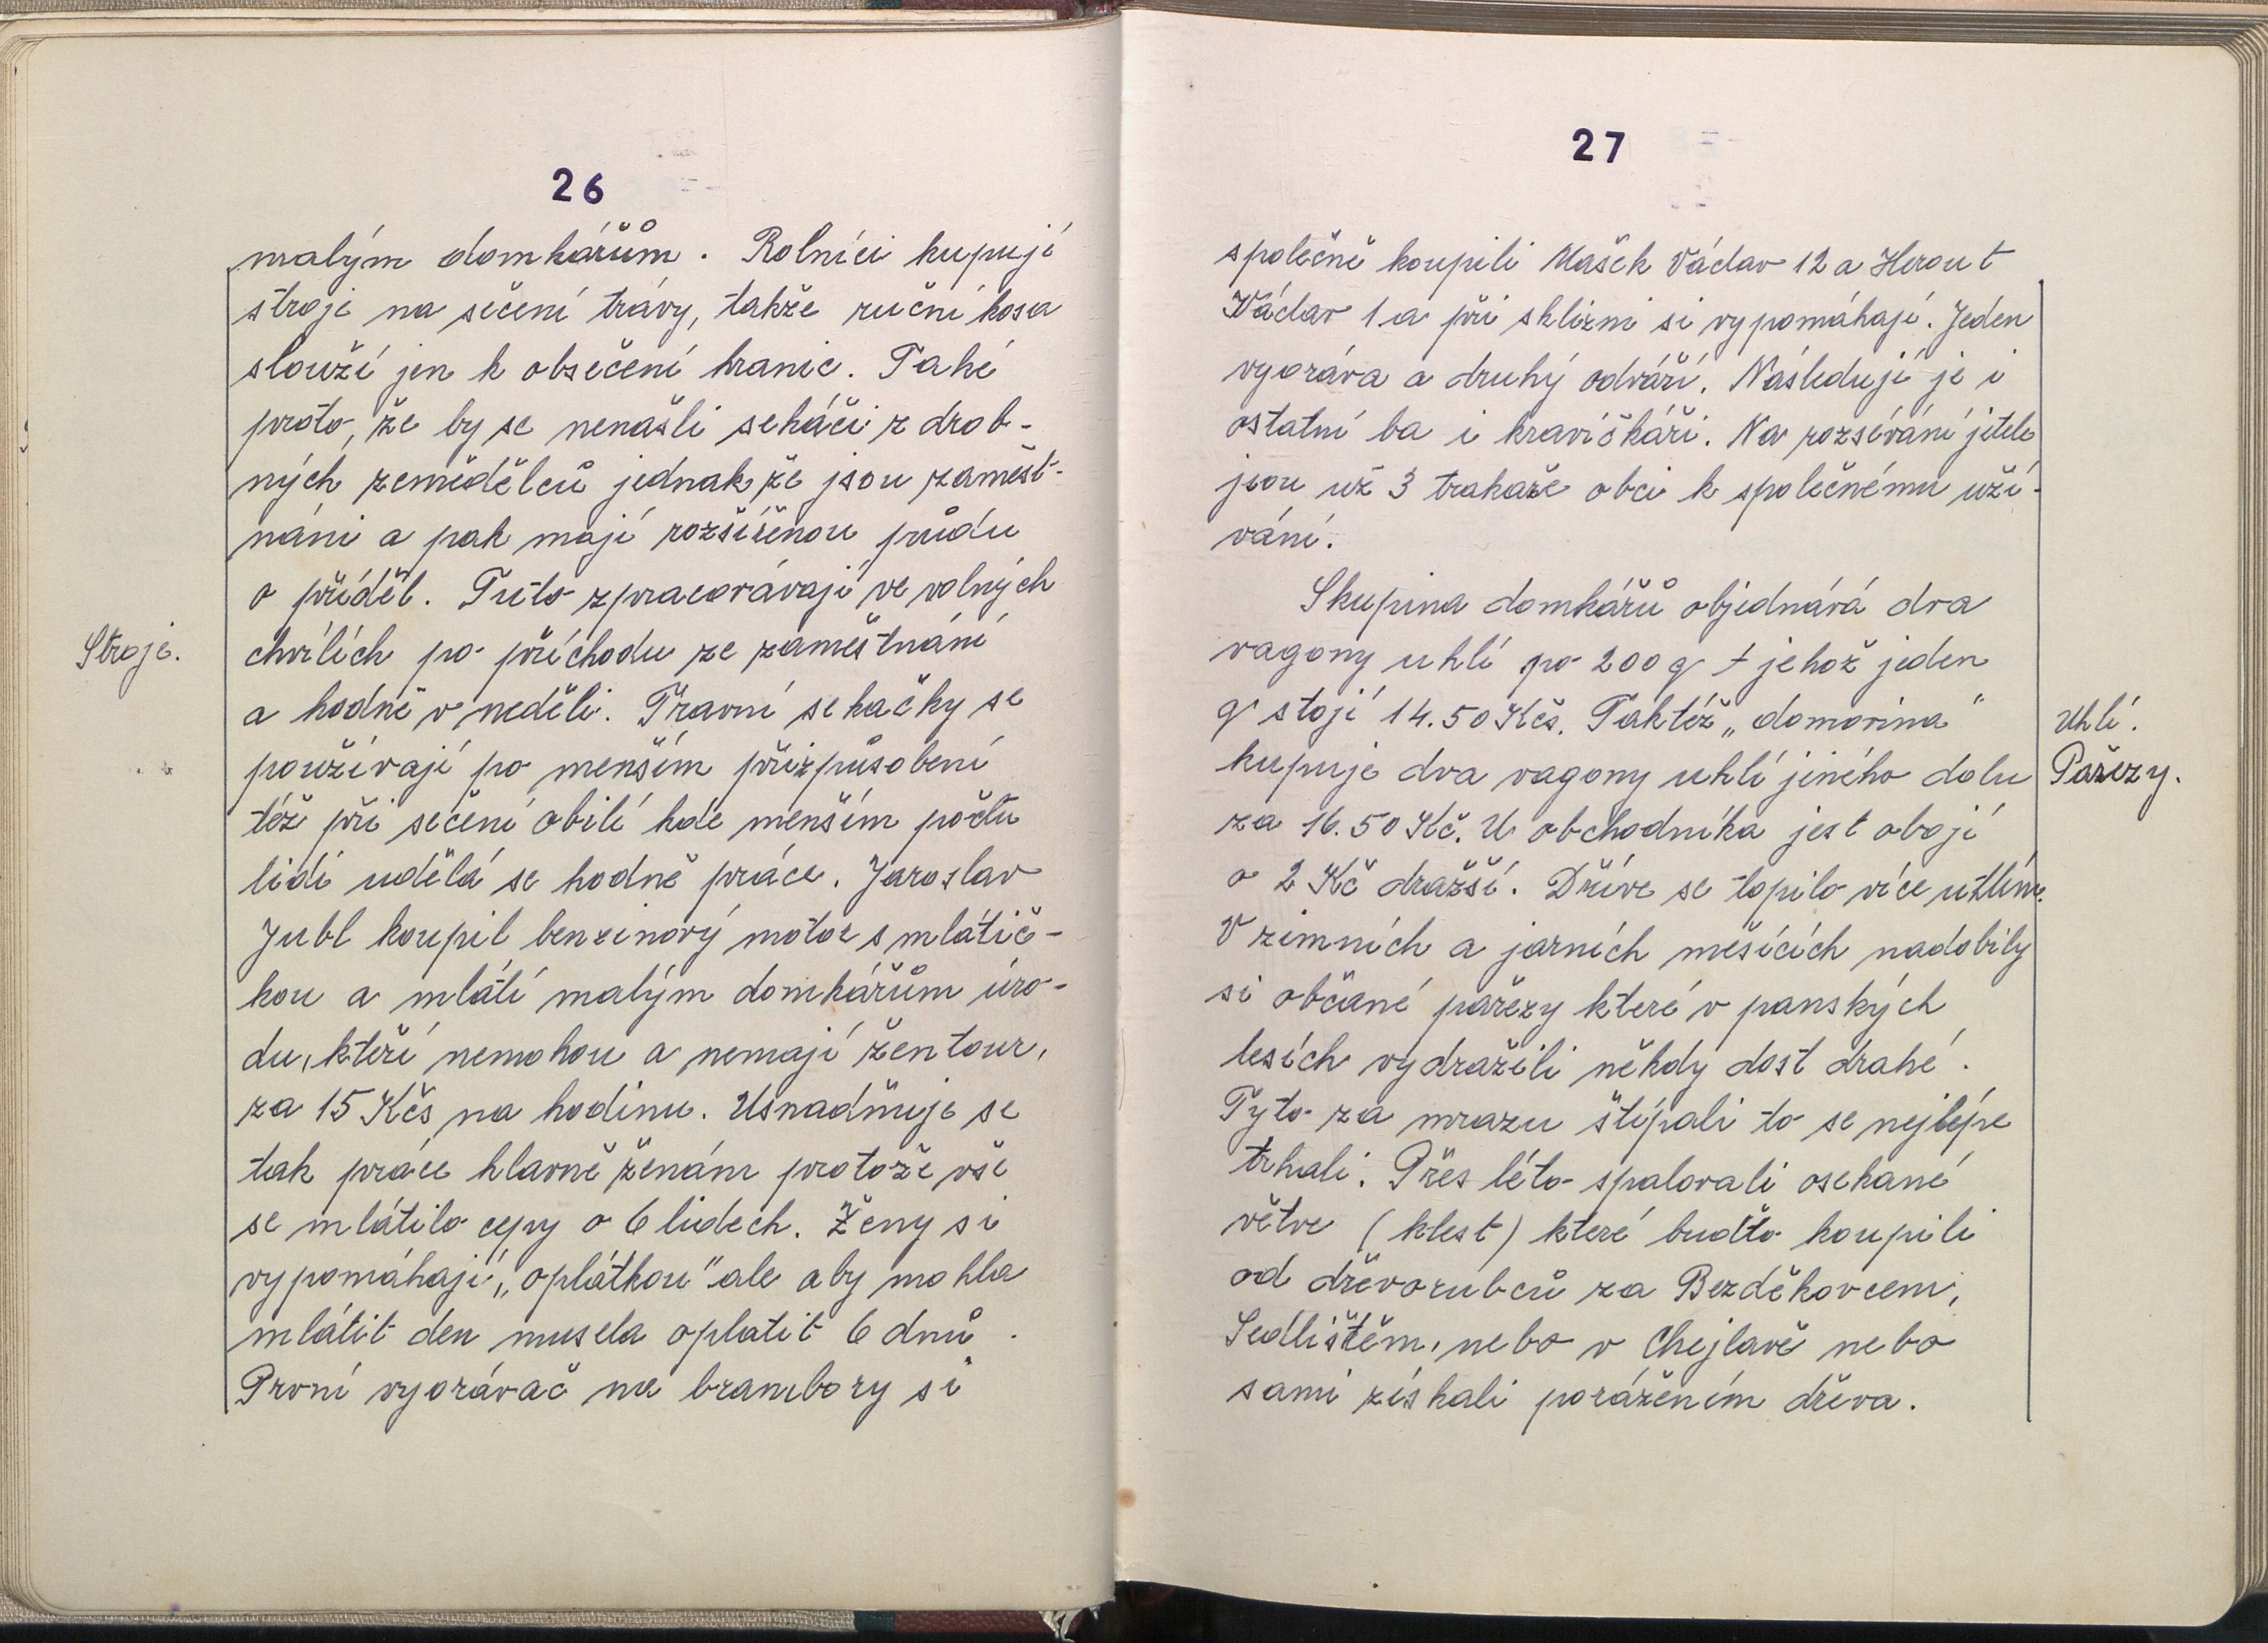 26
malým domkářům. Rolníci kupují
stroje na sečení trávy, takže ruční kosa
slouží jen k obsečení hranic. Také
proto, že by se nenašli sekáči z drob-
ných zemědělců jednak že jsou zaměst-
náni a pak mají rozšířenou půdu
o příděl. Tuto zpracovávají ve volných
Stroje.
chvílích po příchodu ze zaměstnání
a hodně v neděli. Travní sekačky se
používají po menším přizpůsobení
též při sečení obilí kde menším počtu
lidí udělá se hodně práce. Jaroslav
Jubl koupil benzinový motor s mlátič-
kou a mlátí malým domkářům úro-
du, kteří nemohou a nemají žentour,
za 15 Kčs na hodinu. Usnadňuje se
tak práce hlavně ženám protože vše
se mlátilo cepy o 6 lidech. Ženy si
vypomáhají „oplátkou" ale aby mohla
mlátit den musela oplatit 6 dnů.
První vyorávač na brambory si
27
společně koupili Mašek Václav 12 a Herout
Václav 1 a při sklizni si vypomáhají. Jeden
vyorává a druhý odváží. Následují je i
ostatní ba i kravičkáři. Na rozsévání jetele
jsou už 3 trakaře obci k společnému uží-
vání.
Skupina domkářů objednává dva
vagony uhlí po 200 q jehož jeden
q stojí 14.50 Kčs. Taktéž „domovina"
Uhlí.
kupuje dva vagony uhlí jiného dolu
Pařezy.
za 16.50 Kč. U obchodníka jest obojí
o 2 Kč dražší. Dříve se topilo více uhlím.
V zimních a jarních měsících nadobily
si občané pařezy které v panských
lesích vydražili někdy dost drahé.
Tyto za mrazu štípali to se nejlépe
trhali. Přes léto spalovali osekané
větve (klest) které buďto koupili
od dřevorubců za Bezděkovcem,
Sedlištěm, nebo v Chejlavě nebo
sami získali porážením dřeva.